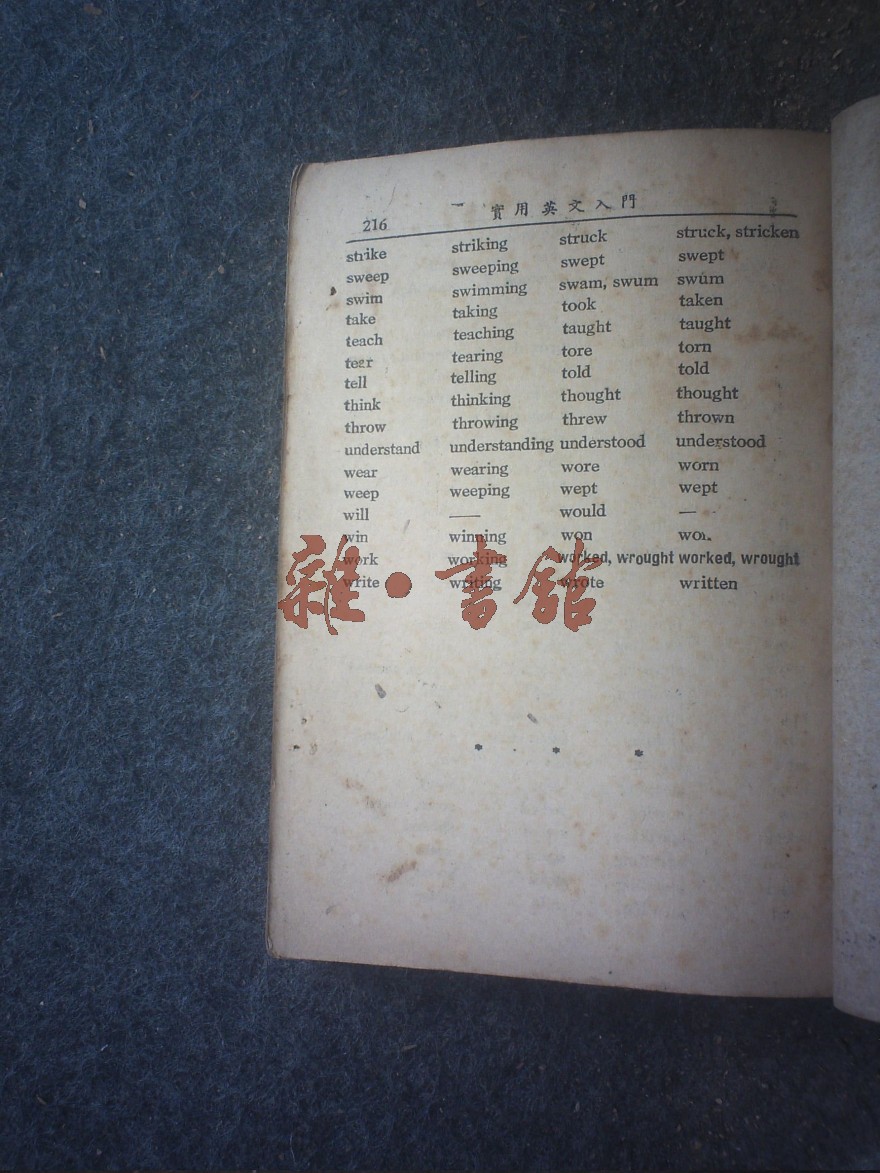 216 實用英文入門
strike striking struck struck, stricken
sweep sweeping swept swept
swim swimming swam, swum swum
take taking took taken
teach teaching taught taught
tear tearing tore torn
tell telling told told
think thinking thought thought
throw throwing threw thrown
understand understanding understood understood
wear wearing wore worn
weep weeping wept wept
will — would —
win winning won
work working worked, wrought worked, wrought
write writing wrote written
* * *
雜·書館